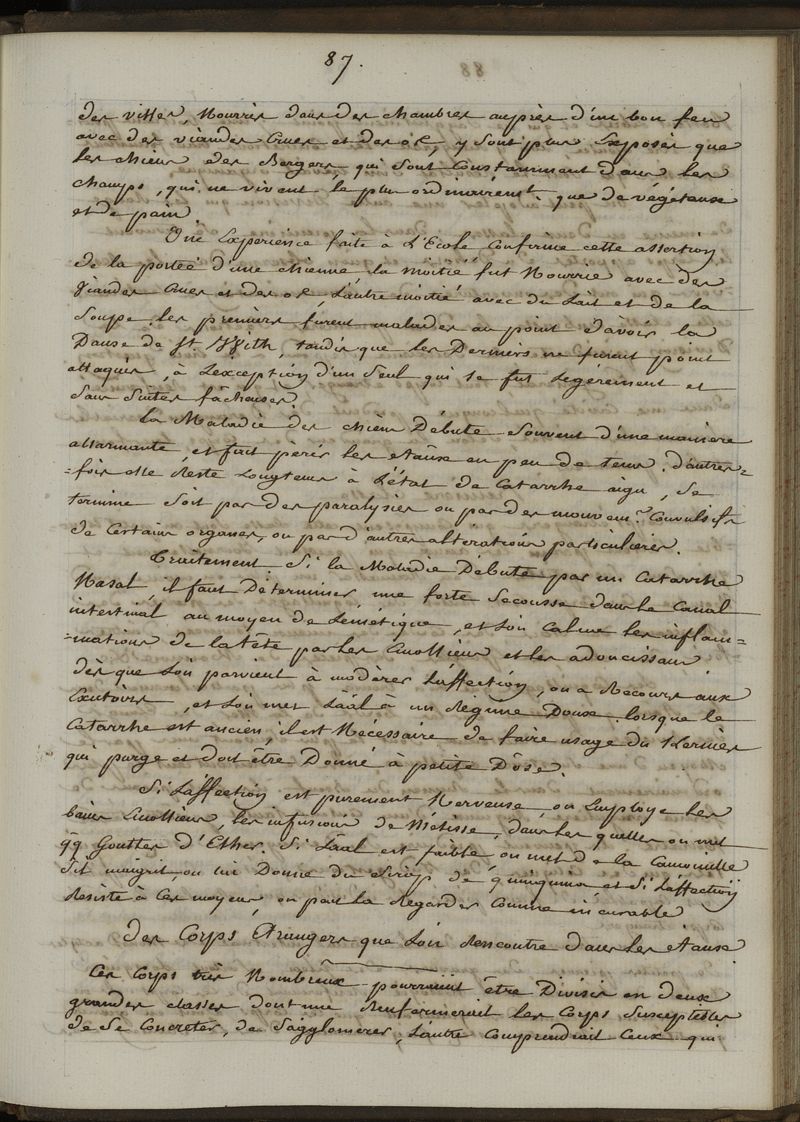 87.
des villes, Nourris dans des chambres auprès d'un bon feu
avec des viandes Cuites et des os, y sont plus Exposés que
les chiens des Bergers qui sont Constamment dans les
champs, qui ne vivent le plus ordinairemt. que de végétaux
et de pain
Une Expérience faite à L'Ecole Confirme cette assertion
de la portée d'une chienne la moitié fut Nourrie avec des
Viandes Cuites et des os, L'autre moitié avec du Lait et de la
Soupe. les premiers furent malades au point d'avoir la
Danse de St With, tandis que les Derniers ne furent point
attaqués, à L'exception d'un Seul qui le fut Légèrement et
Sans Suites fâcheuses.
La Maladie des chiens Débute Souvent d'une maniere
allarmante, et fait périr les ataux en peu de tems. d'autres=
=fois elle Reste Longtems à L'état de Catarrhe aigu, Se
termine Soit par des paralysies ou par des mouvemts. Convulsifs
de Certains organes, ou par d'autres altérations particulieres.
Traitement. Si la Maladie Débute par un Catarrhe
Nasal, il faut Déterminer une forte Secousse dans le Canal
intestinal au moyen de L'émétique, et L'on Calme les inflam=
=mations de la tête par les Emolliens et les adoucissans
dès que L'on parvient à modérer L'affection, on a Recours aux
Exutoires, et L'on met L'aal à un Régime Doux lorsque le
Catarrhe est ancien, il est Nécessaire de faire usage du Kermès
qui purge et doit être Donné à petite Dose.
Si L'affection est purement Nerveuse, on Employe les
bains Emolliens, les infusions de Mélisse, dans les quelles on met
qq Gouttes d'Ether. Si L'aal est faible on met de la Camomille
S'il maigrit on lui Donne du Sirop de quinquina et Si L'affection
Résiste à Ces moyens, on peut la Regarder Comme incurable
Des Corps Etrangers que L'on Rencontre dans les ataux
Ces Corps très Nombreux pourraient être Divisés en deux
grandes classes dont une Renfermerait les Corps Susceptibles
de Se Concréter, de S'agglomerer, L'autre Comprendrait Ceux qui